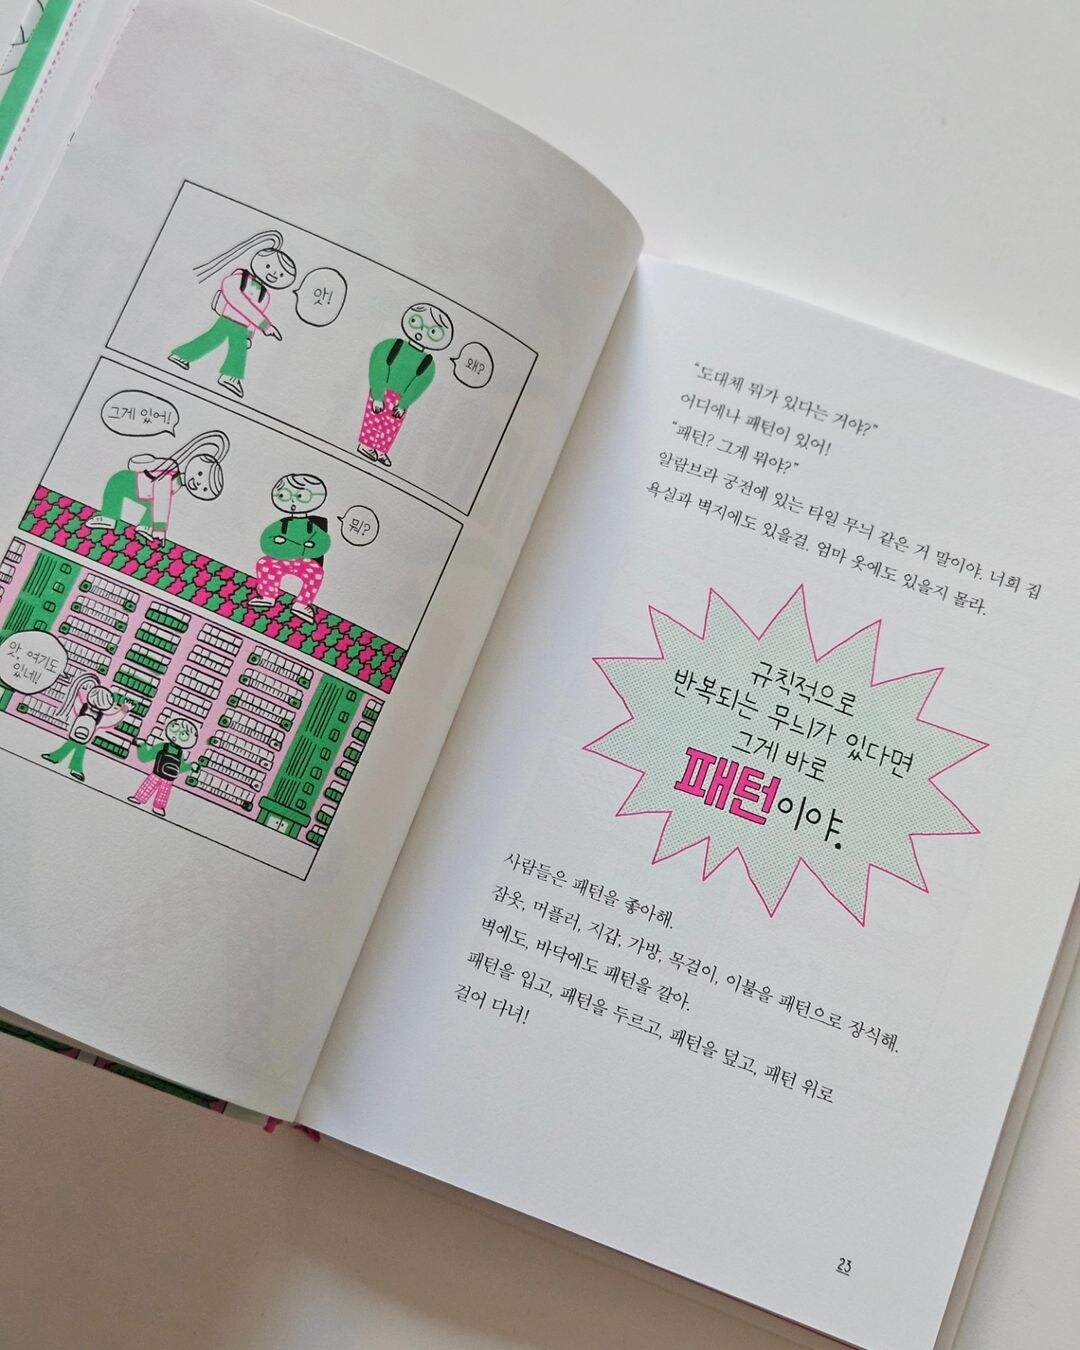 앗!
왜?
그게 있어!
뭐?
앗, 여기도
있네!
"도대체 뭐가 있다는 거야?"
어디에나 패턴이 있어!
"패턴? 그게 뭐야?"
알람브라 궁전에 있는 타일 무늬 같은 거 말이야. 너희 집
욕실과 벽지에도 있을걸. 엄마 옷에도 있을지 몰라.
규칙적으로
반복되는 무늬가 있다면
그게 바로
패턴이야.
사람들은 패턴을 좋아해.
잠옷, 머플러, 지갑, 가방, 목걸이, 이불을 패턴으로 장식해.
벽에도, 바닥에도 패턴을 깔아.
패턴을 입고, 패턴을 두르고, 패턴을 덮고, 패턴 위로
걸어 다녀!
23